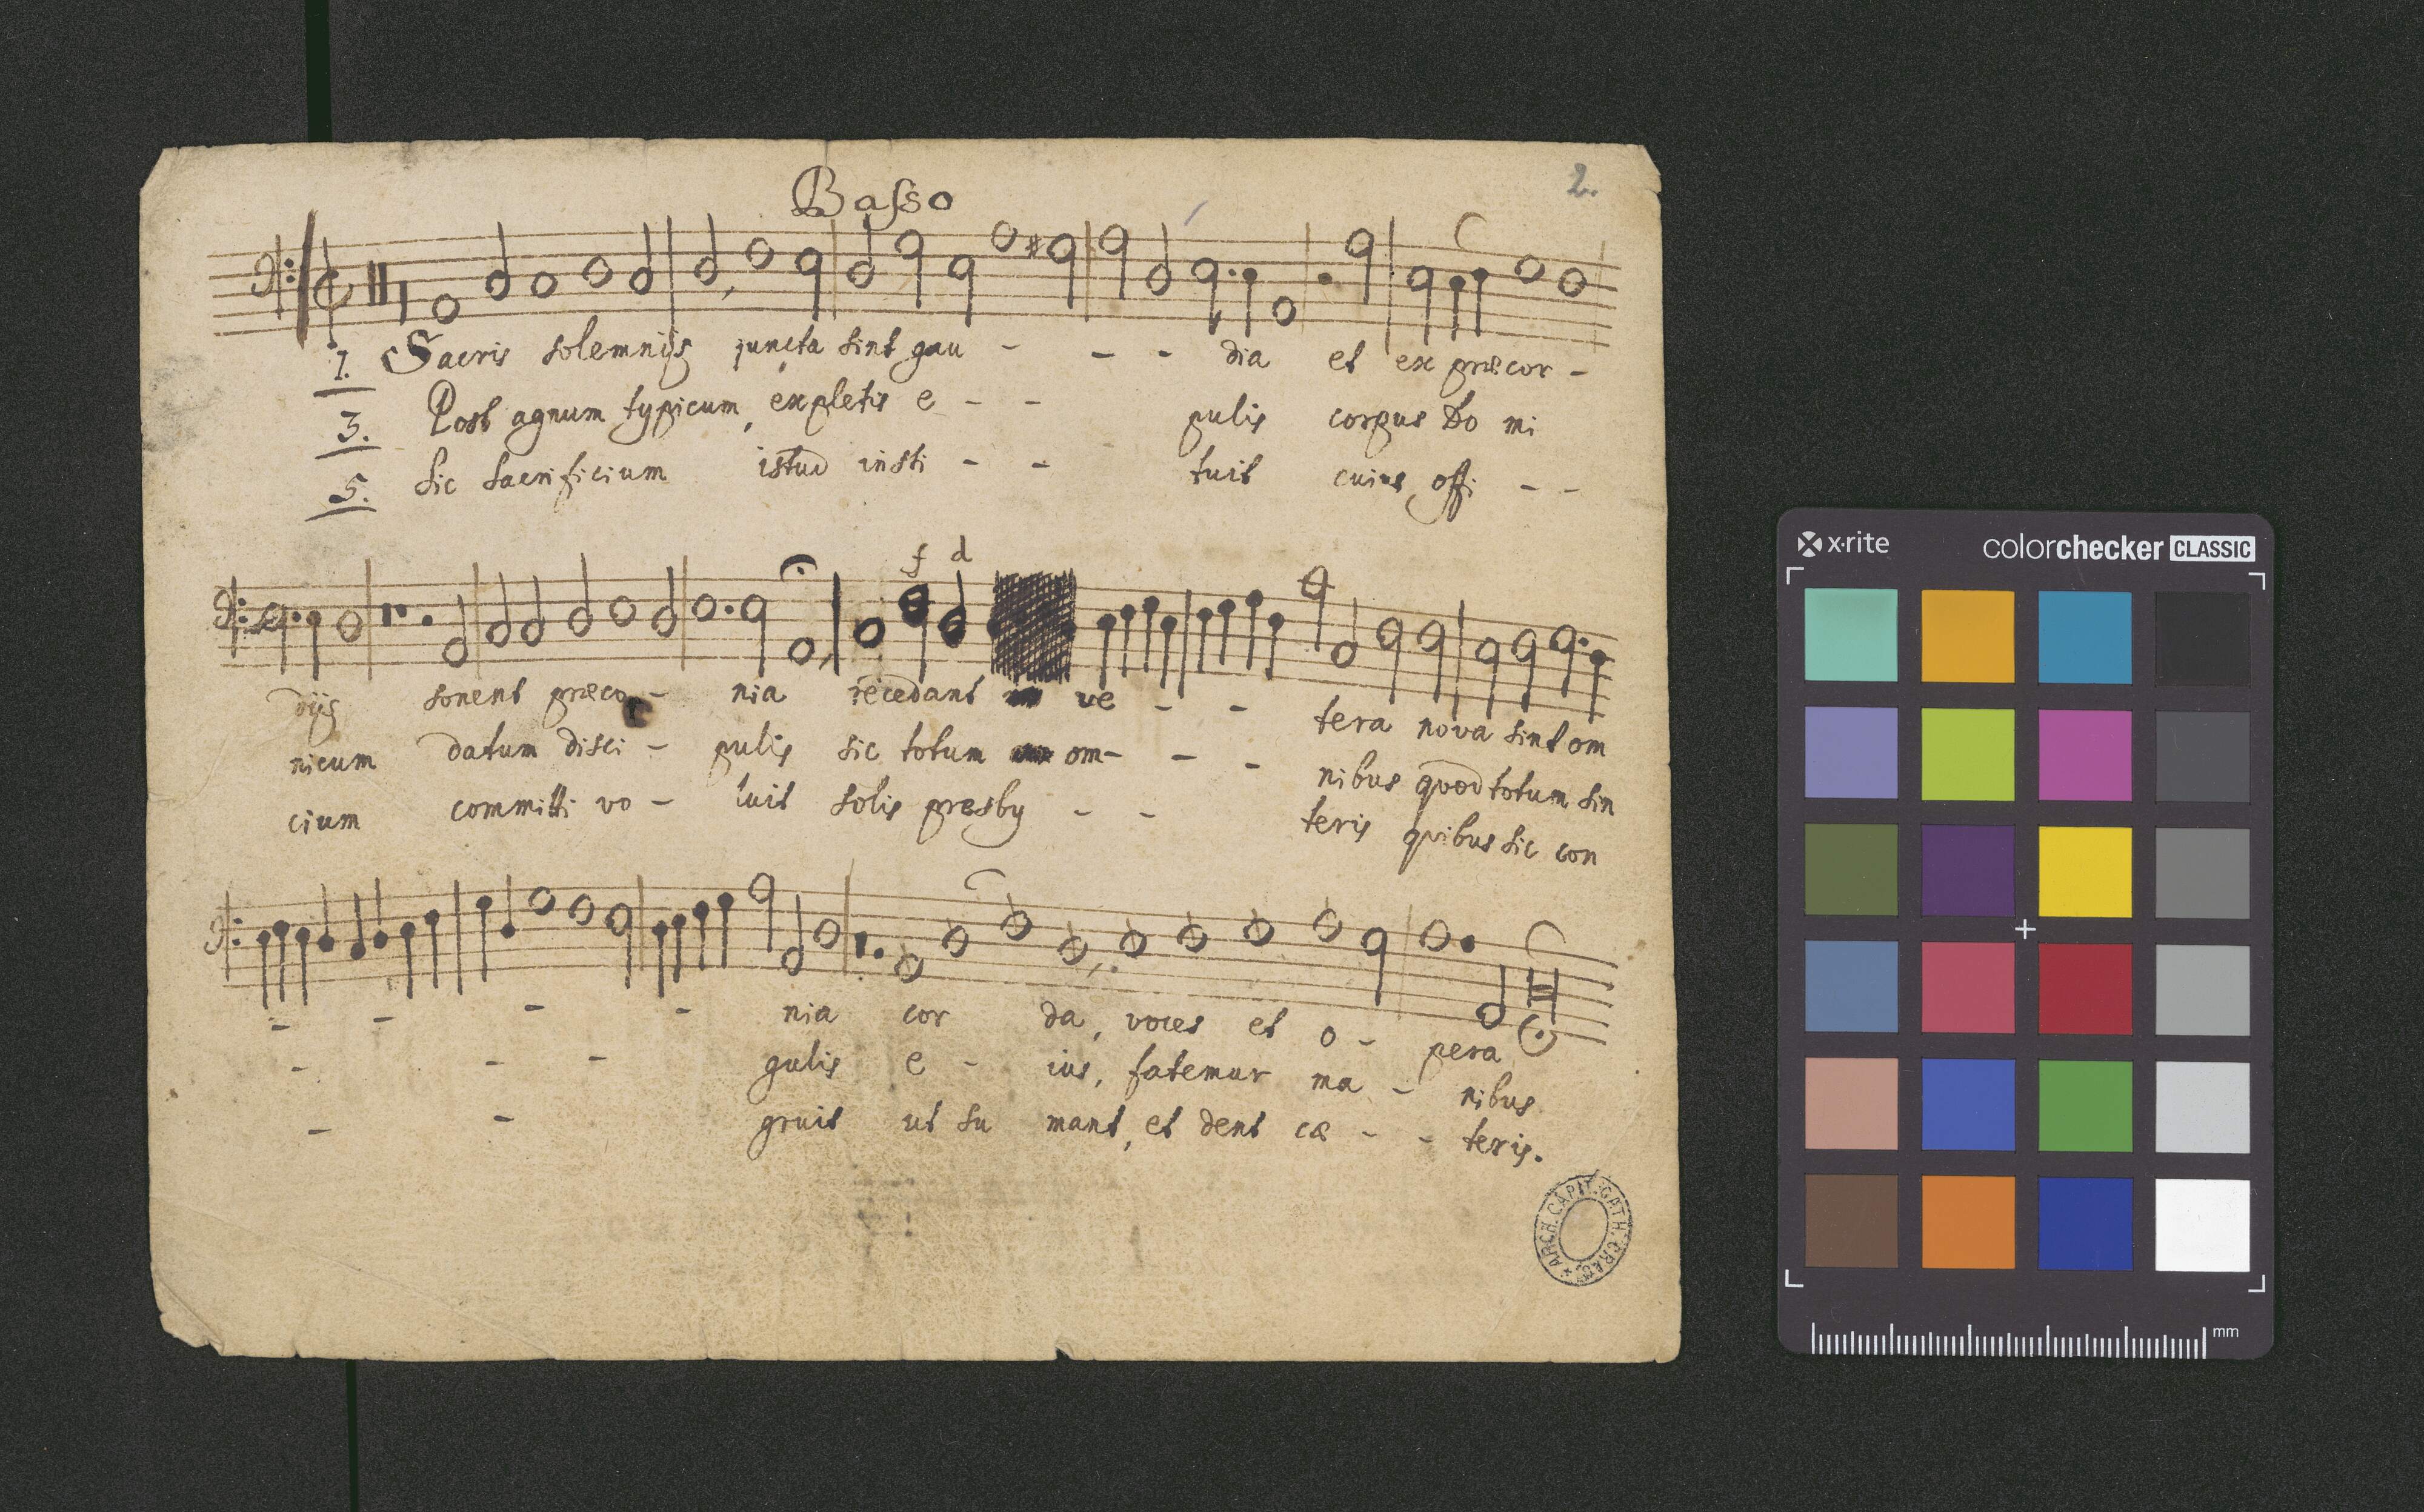 Basso
2.
1. Sacris solemnijs juncta sint gau - - - dia et ex præcor -
3. Post agnum typicum, expletis e - - pulis corpus Do mi
5. Sic sacrificium istud insti - - tuit cuius offi - -
f d
dijs sonent præco - nia recedant ve - - tera nova sint om
nicum datum disci - pulis sic totum om - - - nibus quod totum sin
cium committi vo - luit solis presby - - teris quibus sic con
- - - - nia cor da, voces et o - pera
- - - gulis e - ius, fatemur ma - nibus
- - gruit ut su mant, et dent cæ - - teris.
ARCH. CAPIT. CATH. CRAC.
x·rite
colorchecker CLASSIC
mm